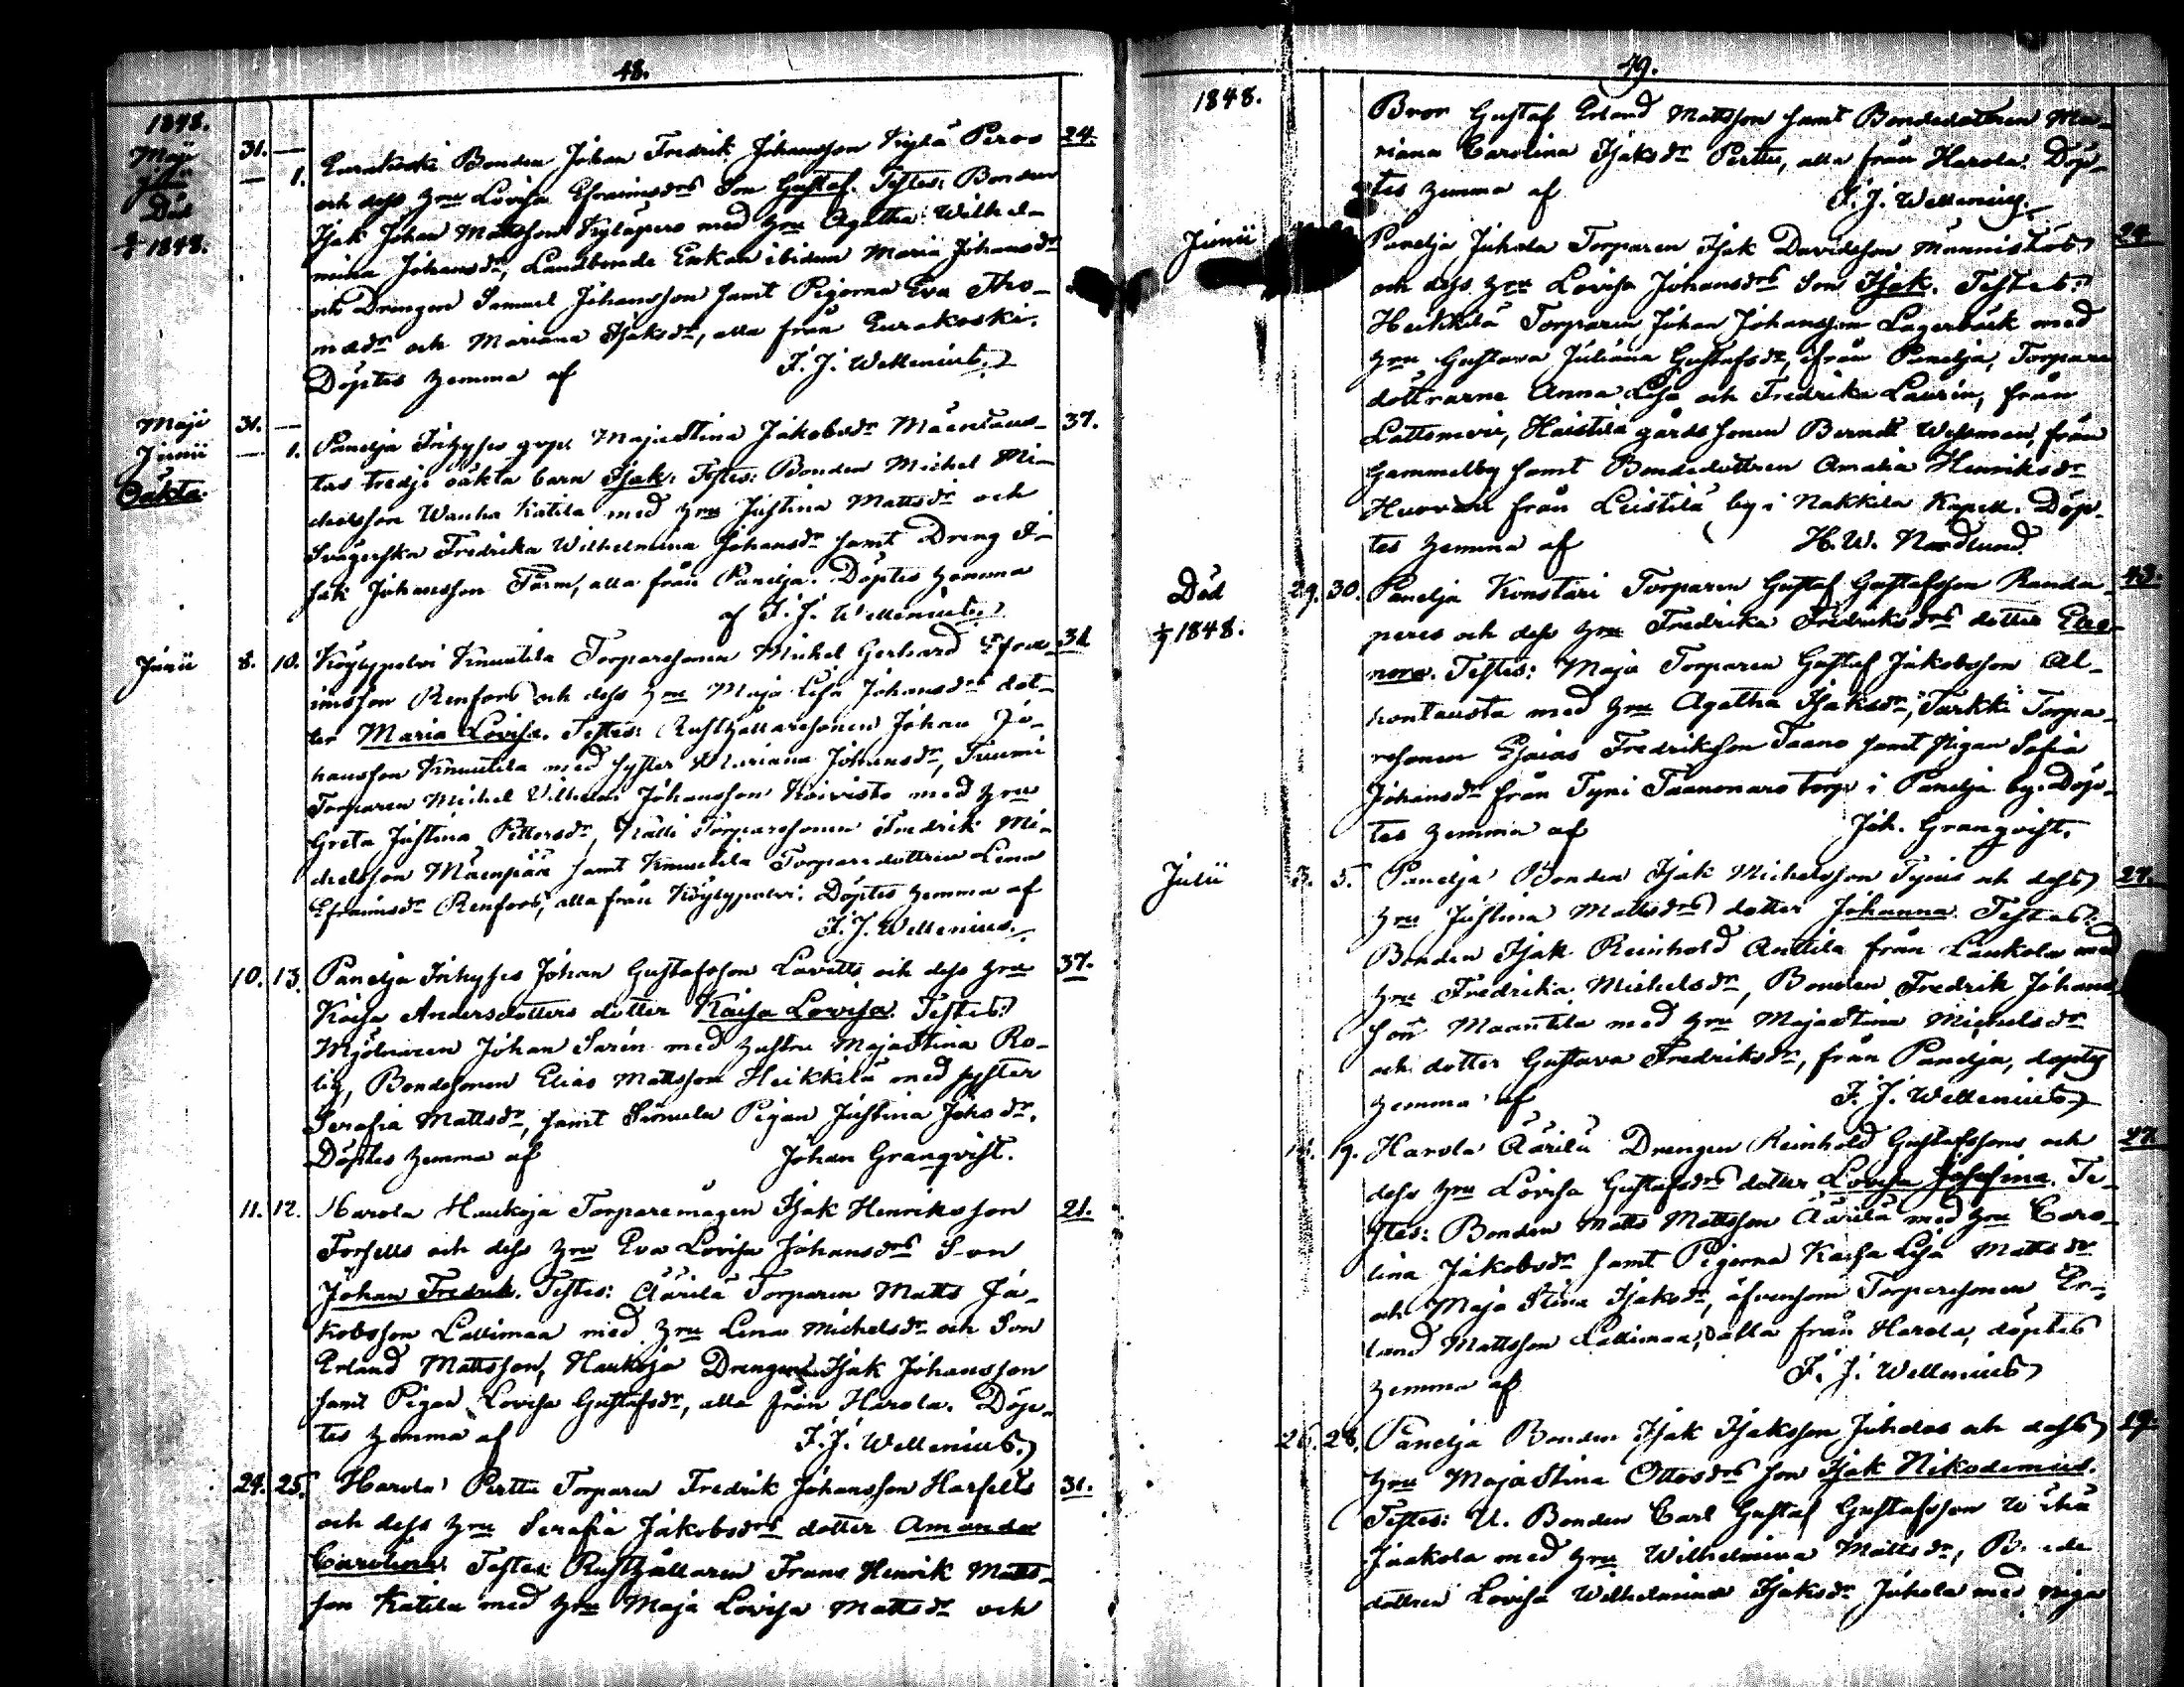 48.
1848.
Maji 31. —
Junii — 1. Eurakoski Bonden Johan Fredrik Johansson Kylä Peros 24.
Död och dess hru Lovisa Efraimsdrs Son Gustaf. Testes: Bonden
1848. Isak Johan Mattsson Kyläpero med hru Agatha Wilhel-
mina Johansdr, Landbonde Enkan ibidem Maria Johansdr
och Drengen Samuel Johansson samt Pigorna Eva Tho-
masdr och Mariana Isaksdr, alla från Eurakoski.
Döptes hemma af F. J. Wellenius.
Maji 31. — 37.
Junii — 1. Panelja Inhyses qvp. Maja Stina Jakobsdr Mäentaus-
Oäkta. tas tredje oäkta barn Isak. Testes: Bonden Michel Mi-
chelsson Wanha Katila med hru Justina Mattsdr och
Svägerska Fredrika Wilhelmina Johansdr samt Dreng I-
sak Johansson Färm, alla från Panelja. Döptes hemma
af F. J. Wellenius.
Junii 8. 10. Köylypolvi Knuutila Torparesonen Michel Gerhard Efra- 31.
imsson Renfors och dess hru Maja Lisa Johansdrs dot-
ter Maria Lovisa. Testes: Rusthållaresonen Johan Jo-
hansson Knuutila med syster Mariana Johansdr, Tuomi
Torparen Michel Wilhelm Johansson Koivisto med hru
Greta Justina Pettersdr, Källi Torparesonen Fredrik Mi-
chelsson Mäenpää samt Knuutila Torparedottren Lena
Efraimsdr Renfors, alla från Köylypolvi. Döptes hemma af
F. J. Wellenius.
10. 13. Panelja Inhyses Johan Gustafsson Lavetts och dess hru 37.
Kaisa Andersdotters dotter Kaisa Lovisa. Testes:
Mjölnaren Johan Sarin med hustru Maja Stina Ro-
lig, Bondesonen Elias Mattsson Heikkilä med syster
Serafia Mattsdr, samt Simula Pigan Justina Johsdr.
Döptes hemma af Johan Granqvist.
11. 12. Harola Haukoja Torparemågen Isak Henriksson 21.
Forsells och dess hru Eva Lovisa Johansdrs Son
Johan Fredrik. Testes: Äärilä Torparen Matts Ja-
kobsson Lallimaa med hru Lena Michelsdr och Son
Erland Mattsson, Haukoja Drengen Isak Johansson
samt Pigan Lovisa Gustafsdr, alla från Harola. Döp-
tes hemma af F. J. Wellenius.
24. 25. Harola Perttu Torparen Fredrik Johansson Harfells 31.
och dess hru Serafia Jakobsdrs dotter Amanda
Carolina. Testes: Rusthållaren Frans Henrik Matts-
son Katila med hru Maja Lovisa Mattsdr och
49.
1848.
Bror Gustaf Erland Mattsson samt Bondedottren Ma-
riana Carolina Isaksdr Perttu, alla från Harola. Döp-
tes hemma af F. J. Wellenius.
Junii Panelja Juhola Torparen Isak Davidsson Männistös 24.
och dess hru Lovisa Johansdrs Son Isak. Testes:
Heikkilä Torparen Johan Johansson Lagerbäck med
hru Gustava Juliana Gustafsdr, från Panelja, Torpare
döttrarne Anna Lisa och Fredrika Laurin, från
Lattomeri, Haistila gårds sonen Berndt Wessman, från
Gammelby samt Bondedottren Amalia Henriksdr
från Leistilä by i Nakkila Kapell. Döp-
tes hemma af H. W. Nordlund
Död 29. 30. Panelja Konstari Torparen Gustaf Gustafsson Randa- 43.
1848. peres och dess hru Fredrika Fredriksdrs dotter Eleo-
nora. Testes: Maja Torparen Gustaf Jakobsson Al-
hontausta med hru Agatha Isaksdr, Tarkki Torpa-
resonen Esaias Fredriksson Taano samt pigan Sofia
Johansdr från Tyni Taanonaro torp i Panelja by. Döp-
tes hemma af Joh. Granqvist.
Julii 3. 5. Panelja Bonden Isak Michelsson Tynis och dess 27.
hru Justina Mattsdrs dotter Johanna. Testes:
Bonden Isak Reinhold Anttila från Laukola med
hru Fredrika Michelsdr, Bonden Fredrik Johans
son Maantila med hru Maja Stina Michelsdr
och dotter Gustava Fredriksdr, från Panelja, döptes
hemma af F. J. Wellenius
19. Harola Äärilä Drengen Reinhold Gustafssons och 27.
dess hru Lovisa Gustafsdrs dotter Lovisa Josefina. Te-
stes: Bonden Matts Mattsson Äärilä med hru Caro-
lina Jakobsdr samt Pigorna Kaisa Lisa Mattsdr
och Maja Stina Isaksdr, äfvensom Torparesonen Er-
land Mattsson Lallimaa, alla från Harola, döptes
hemma af F. J. Wellenius
26. 28. Panelja Bonden Isak Isaksson Juholas och dess 29.
hru Maja Stina Ottosdrs son Isak Nikodemus.
Testes: U. Bonden Carl Gustaf Gustafsson
Jaakola med hru Wilhelmina Mattsdr, Bonde
dottren Lovisa Wilhelmina Isaksdr Juhola med pigan